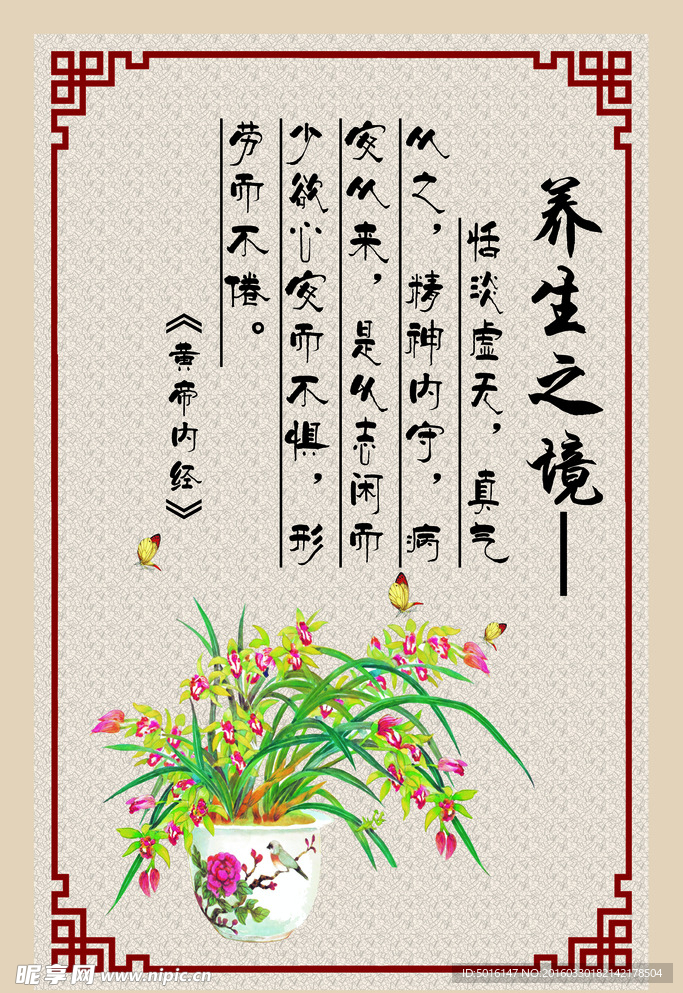 养生之境—
恬淡虚无，真气
从之，精神内守，病
安从来，是从志闲而
少欲心安而不惧，形
劳而不倦。
《黄帝内经》
昵享网 www.nipic.cn
ID:5016147 NO:20160330182142178504